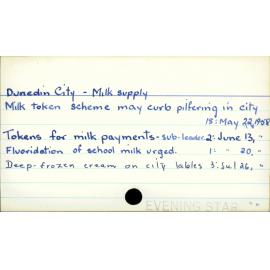 Dunedin City - Milk supply
Milk token scheme may curb pilfering in city
18: May 22, 1958
Tokens for milk payments - sub-leader 2: June 13, "
Fluoridation of school milk urged. 1: " 20, "
Deep-frozen cream on city tables 3: Jul 26, "
EVENING STAR